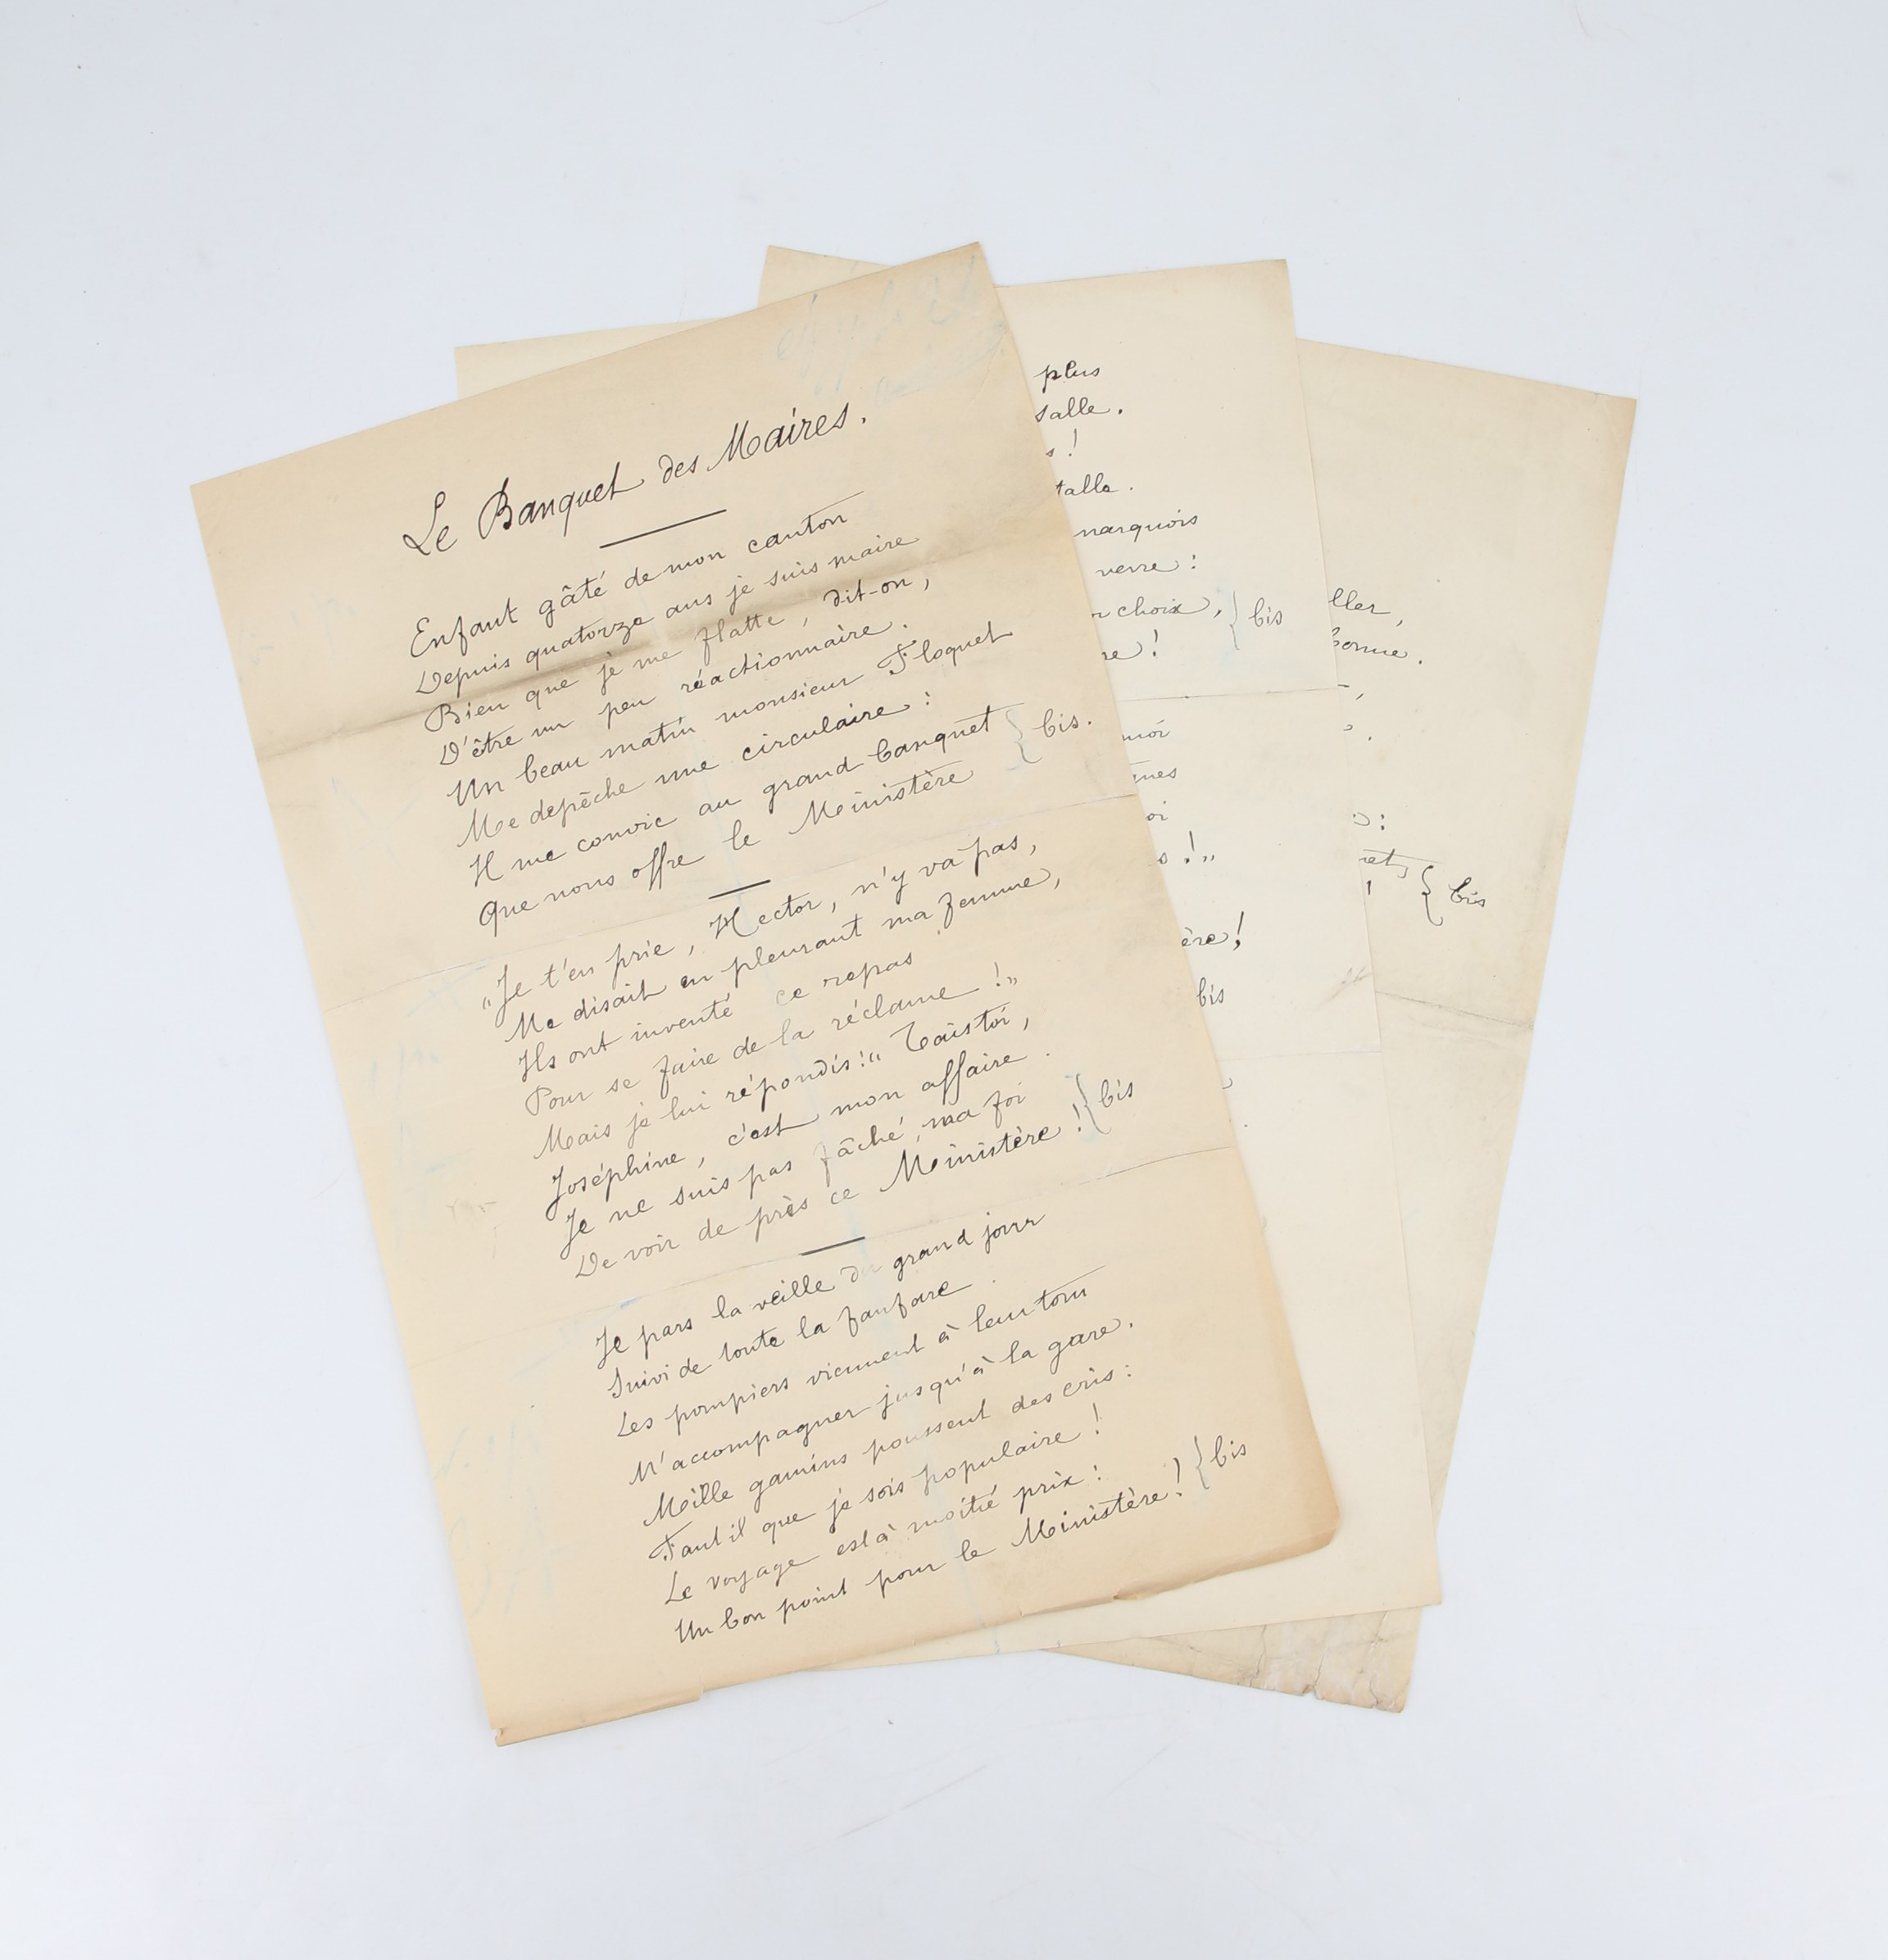 Le Banquet des Maires.
Enfant gâté de mon canton
Depuis quatorze ans je suis maire
Bien que je me flatte, dit-on,
D'être un peu réactionnaire.
Un beau matin monsieur Floquet
Me depêche une circulaire :
Il me convie au grand banquet } bis.
Que nous offre le Ministère
"Je t'en prie, Hector, n'y va pas,
Me disait en pleurant ma femme,
Ils ont inventé ce repas
Pour se faire de la réclame !"
Mais je lui répondis : "Tais toi,
Joséphine, c'est mon affaire.
Je ne suis pas fâché, ma foi } bis
De voir de près ce Ministère !
Je pars la veille du grand jour
Suivi de toute la fanfare.
Les pompiers viennent à leur tour
M'accompagner jusqu'à la gare.
Mille gamins poussent des cris :
Faut il que je sois populaire !
Le voyage est à moitié prix : } bis
Un bon point pour le Ministère !
plus
salle.
s !
talle.
narquois
verre :
choix, } bis
re !
moi
oi
s !"
ère !
bis
ller,
bonne.
} bis